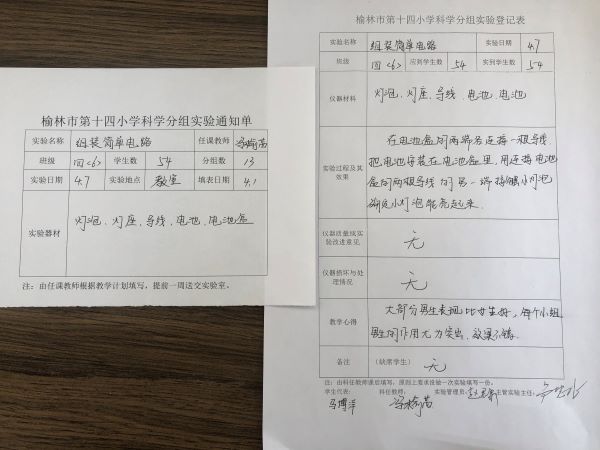 榆林市第十四小学科学分组实验通知单
实验名称 组装简单电路 任课教师
班级 四<6> 学生数 54 分组数 13
实验日期 4.7 实验地点 教室 填表日期 4.1
实验器材 灯泡、灯座、导线、电池、电池盒
注：由任课教师根据教学计划填写，提前一周送交实验室。
榆林市第十四小学科学分组实验登记表
实验名称 组装简单电路 实验日期 4.7
班级 四<6> 应到学生数 54 实到学生数 54
仪器材料 灯泡、灯座、导线、电池、电池
实验过程及其效果
在电池盒的两端各连接一根导线,
把电池安装在电池盒里,用连接电池
盒的两根导线的另一端接触小灯泡
确定小灯泡能亮起来.
仪器质量或实验改进意见 无
仪器损坏与处理情况 无
教学心得
大部分男生表现比女生好,每个小组
男生的作用尤为突出,效果不错.
备注 (缺席学生) 无
注：由科任教师课后填写，原则上要求没做一次实验填写一份。
学生代表： 科任教师： 实验管理员： 主管实验主任：
马博洋